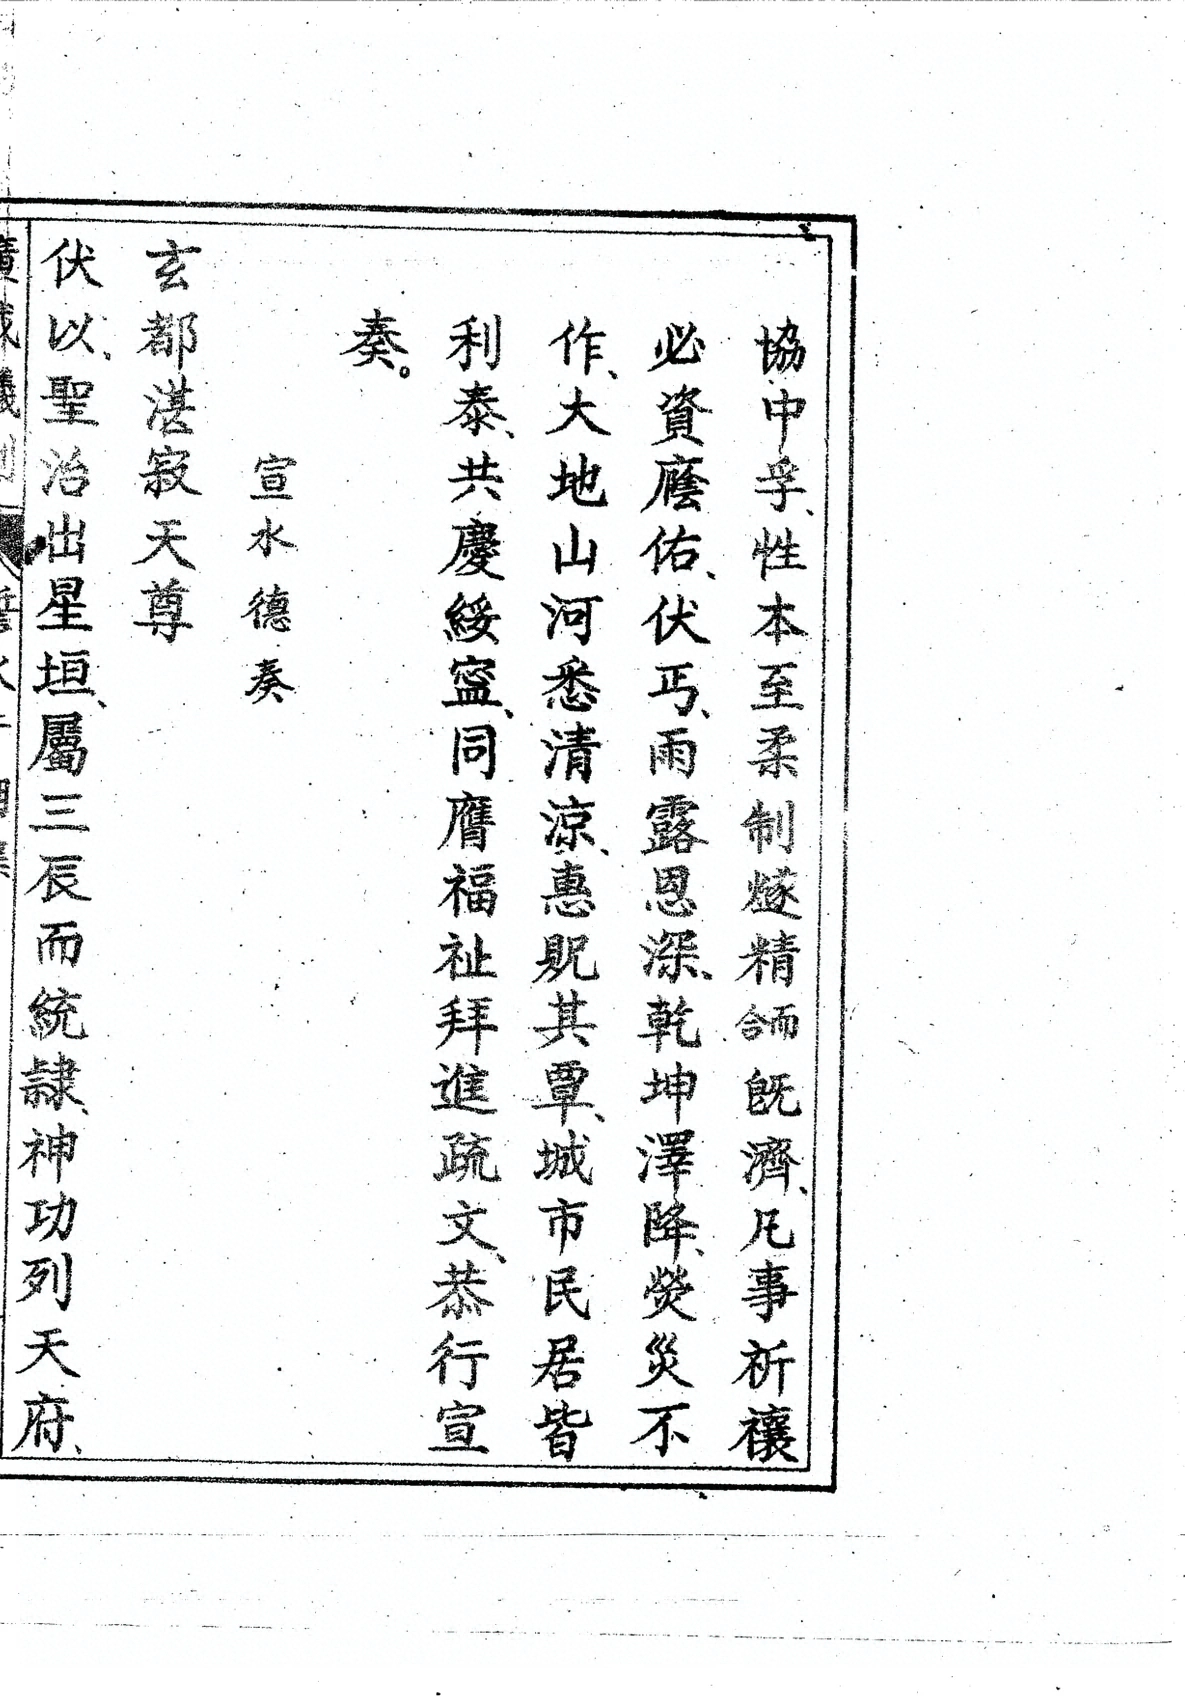 協中孚、性本至柔制燧精而合既濟、凡事祈禳
必資廕佑、伏丐、雨露恩深、乾坤澤降、熒災不
作、大地山河悉清涼、惠貺其覃、城市民居皆
利泰、共慶綏寍、同膺福祉拜進疏文、恭行宣
奏。
宣水德奏
玄都湛寂天尊
伏以、聖治出星垣、屬三辰而統隸、神功列天府、